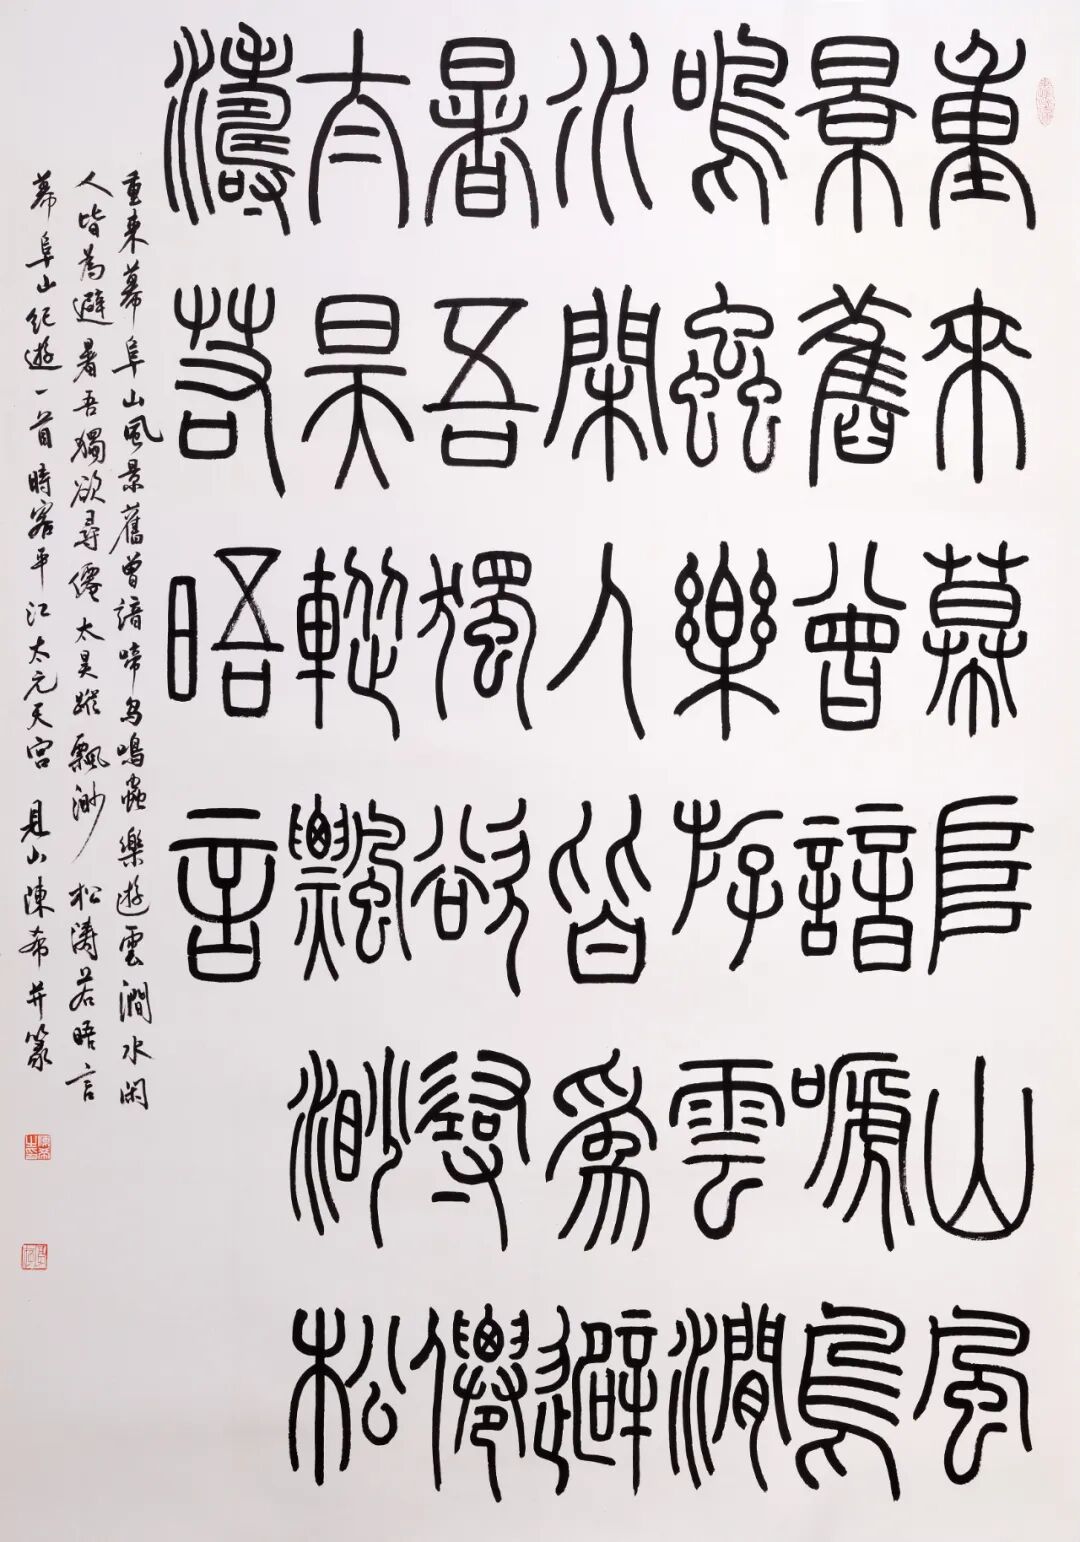 重來幕阜山風
景舊曾諳嗁鳥
鳴蟲樂斿雲澗
水閑人皆為避
暑吾獨欲尋僊
太昊䡮飄渺松
濤若晤言
重來幕阜山風景舊曾諳啼鳥鳴蟲樂遊雲澗水閑
人皆為避暑吾獨欲尋僊太昊蹤飄渺松濤若晤言
幕阜山紀遊一首時客平江太元天宮 見山陳希并篆